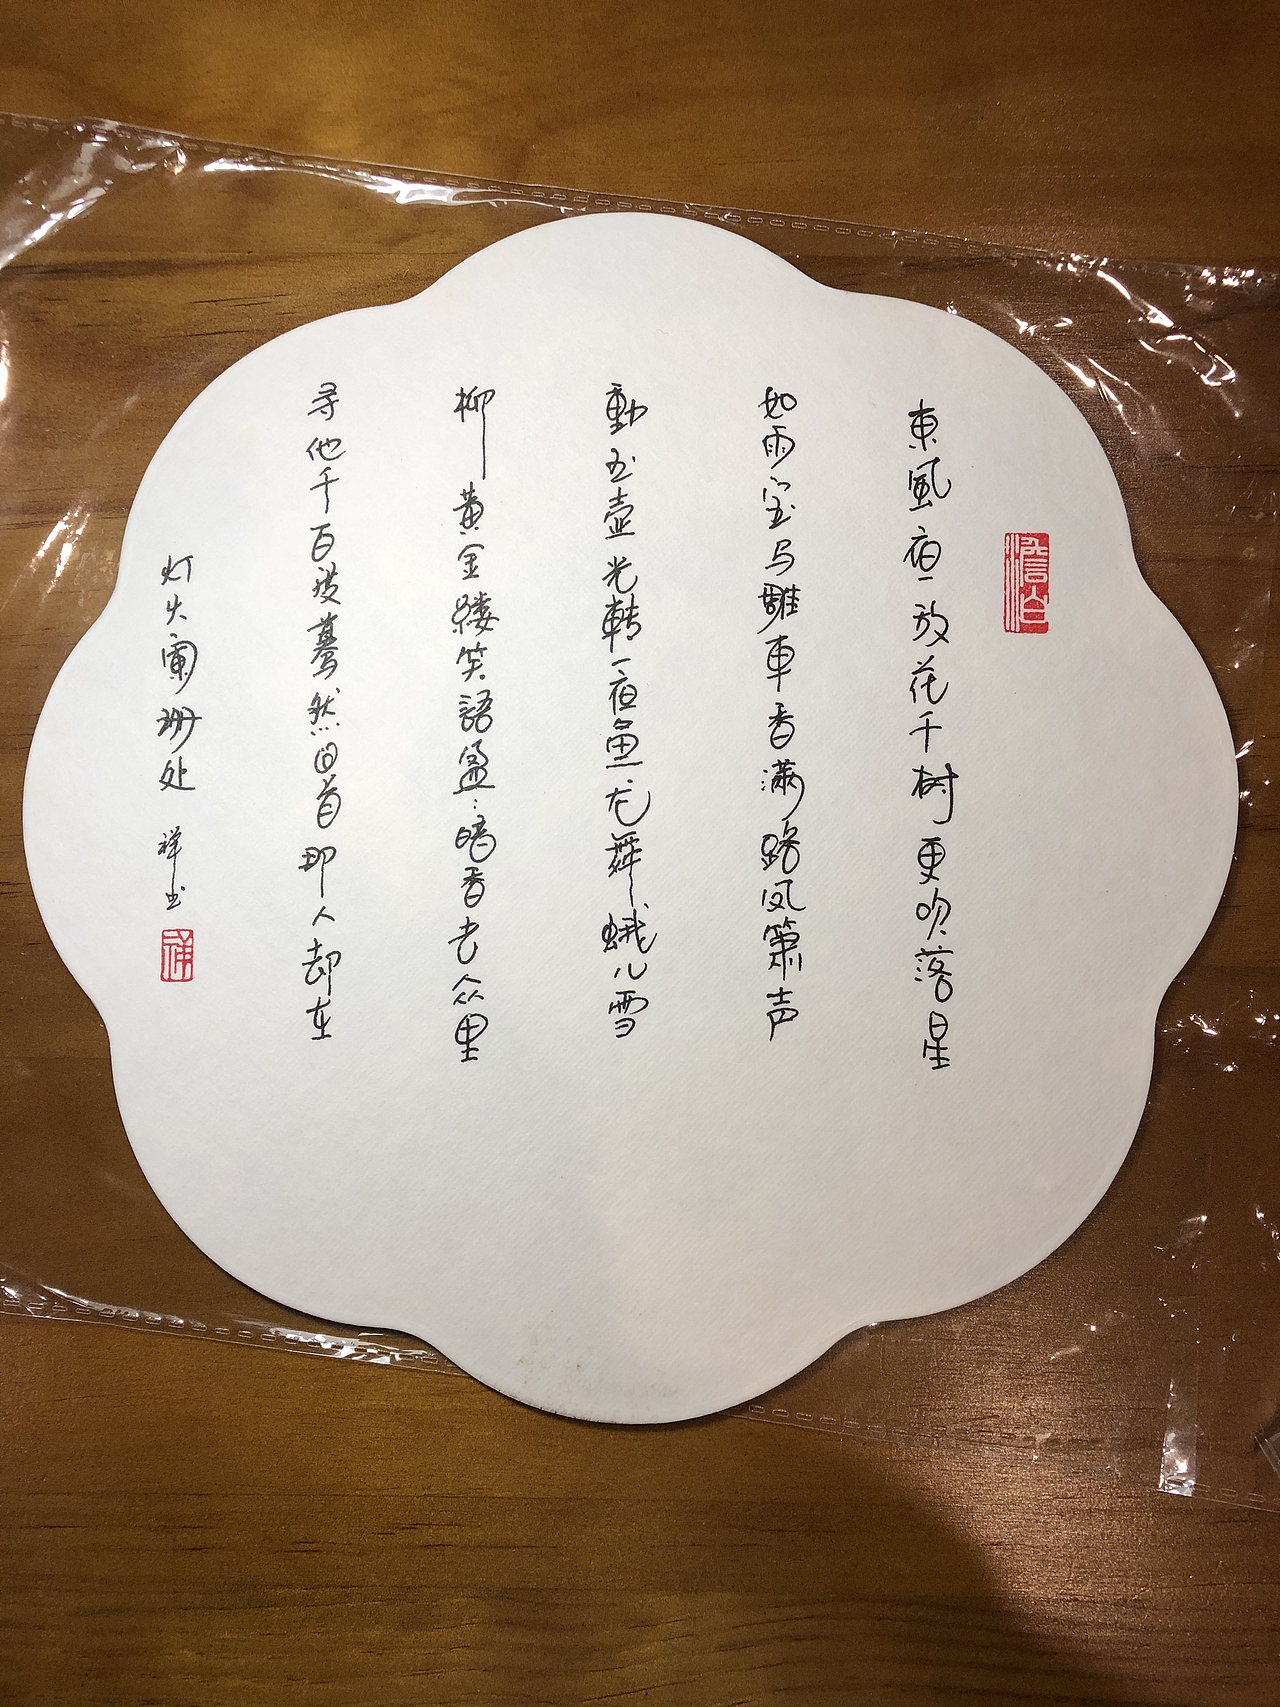 澹泊
東風夜一放花千树更吹落星
如雨宝马雕車香满路凤簫声
動玉壶光轉一夜鱼龙舞蛾儿雪
柳黄金縷笑語盈〻暗香去众里
寻他千百度蓦然回首那人却在
灯火阑珊处 祥书
祥